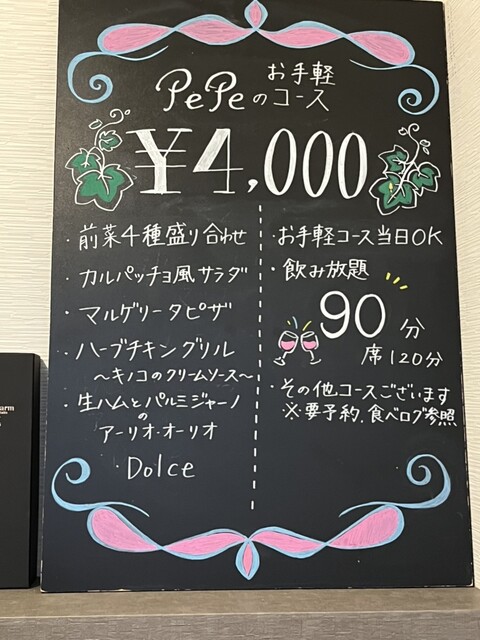 PePeのお手軽コース
¥4,000
・前菜4種盛り合わせ
・カルパッチョ風サラダ
・マルゲリータピザ
・ハーブチキングリル
～キノコのクリームソース～
・生ハムとパルミジャーノ
の
アーリオ・オーリオ
・Dolce
・お手軽コース当日OK
・飲み放題
90分
席120分
・その他コースございます
※要予約、食べログ参照
arm